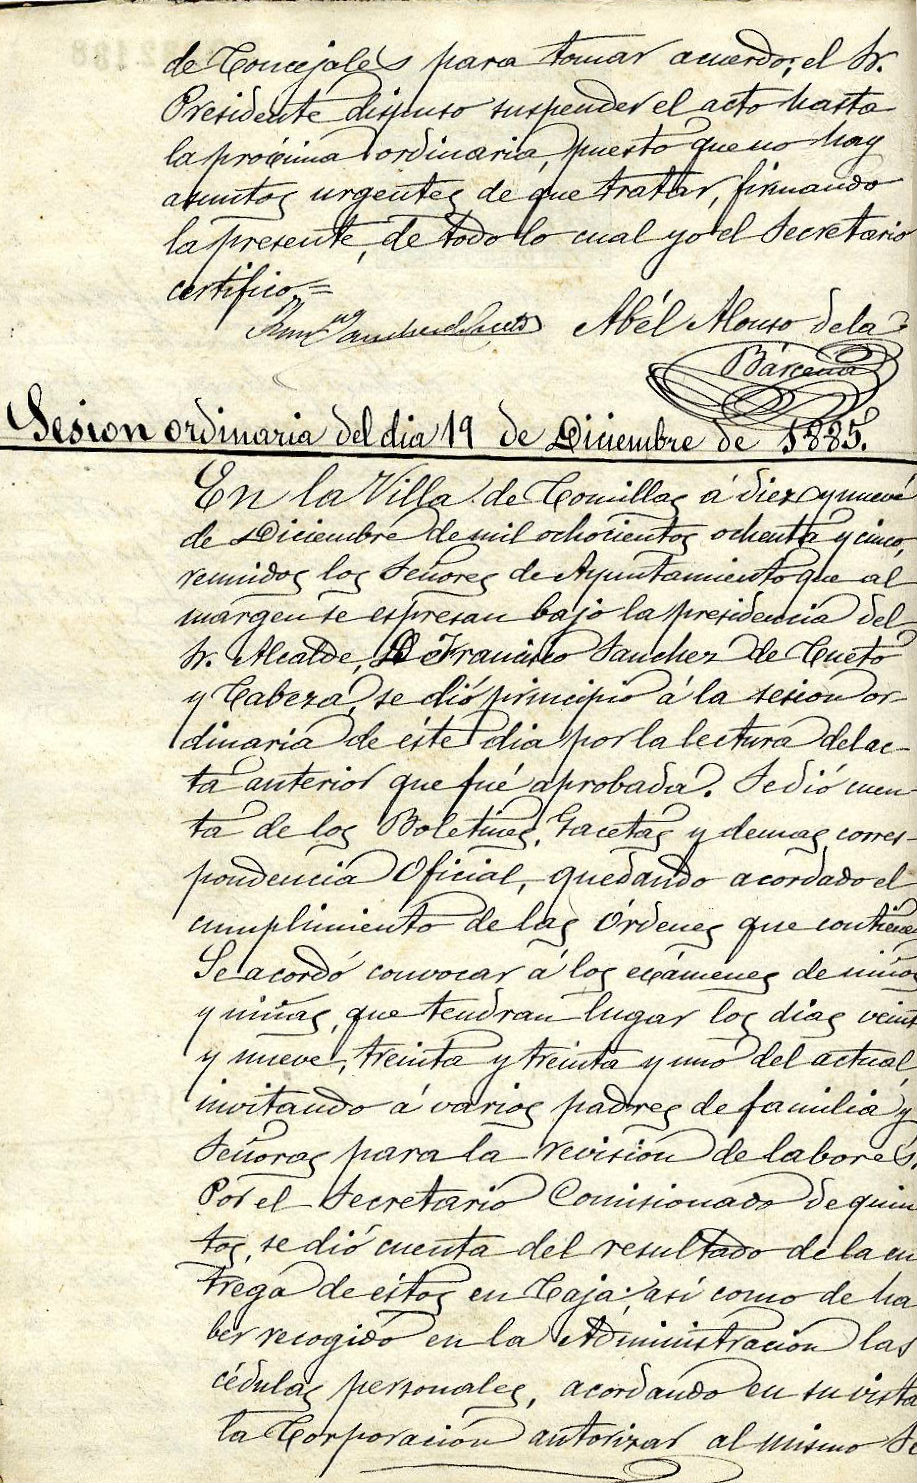 de Concejales para tomar acuerdo; el Sr.
Presidente dispuso suspender el acto hasta
la próxima ordinaria, puesto que no hay
asuntos urgentes de que tratar, firmando
la presente, de todo lo cual yo el Secretario
certifico,=
Abél Alonso de la
Bárcena
Sesion ordinaria del dia 19 de Diciembre de 1885.
En la Villa de Comillas á diez y nueve
de Diciembre de mil ochocientos ochenta y cinco,
reunidos los Señores de Ayuntamiento que al
margen se espresan bajo la presidencia del
Sr. Alcalde, D. Francisco Sanchez de Cueto
y Cabeza, se dió principio á la sesion or-
dinaria de éste dia por la lectura del ac-
ta anterior que fué aprobada. Se dió cuen-
ta de los Boletines, Gacetas y demas corres-
pondencia Oficial, quedando acordado el
cumplimiento de las Órdenes que contienen
Se acordó convocar á los exámenes de niños
y niñas, que tendran lugar los dias veint
y nueve, treinta y treinta y uno del actual,
invitando á varios padres de familia y
Señoras para la revision de labores.
Por el Secretario Comisionado de quin
tos, se dió cuenta del resultado de la en
trega de éstos en Caja: así como de ha
ber recogido en la Administracion las
cédulas personales, acordando en su vista
la Corporacion autorizar al mismo Se